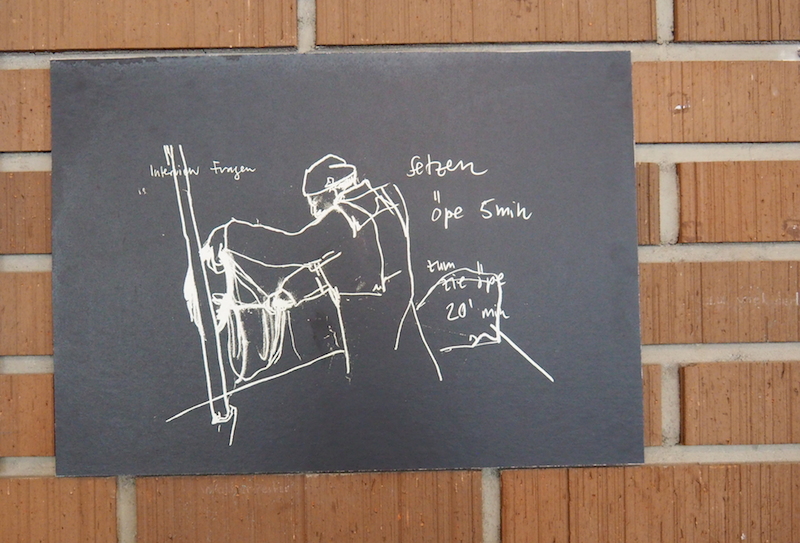 Interview Fragen
setzen
öpe 5 min
zum
zie öpe
20' min